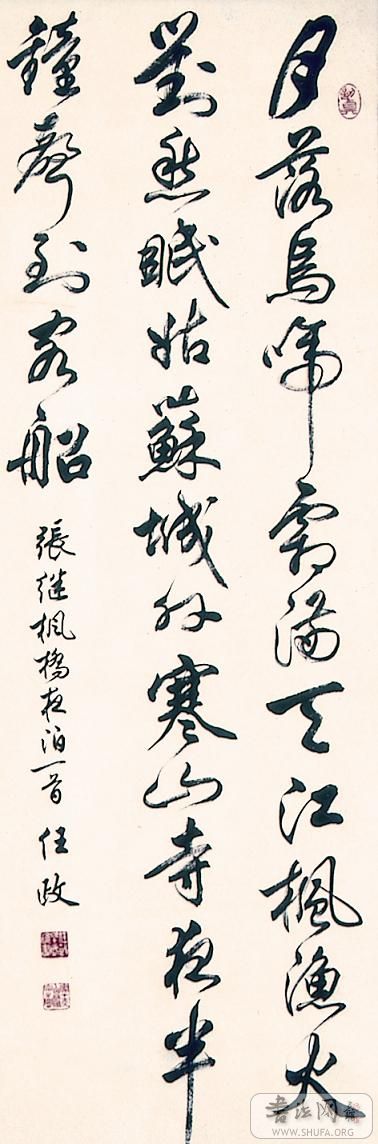 月落烏啼霜滿天江楓漁火
對愁眠姑蘇城外寒山寺夜半
鐘聲到客船
張继楓橋夜泊一首 任政
书法网
WWW.SHUFA.ORG